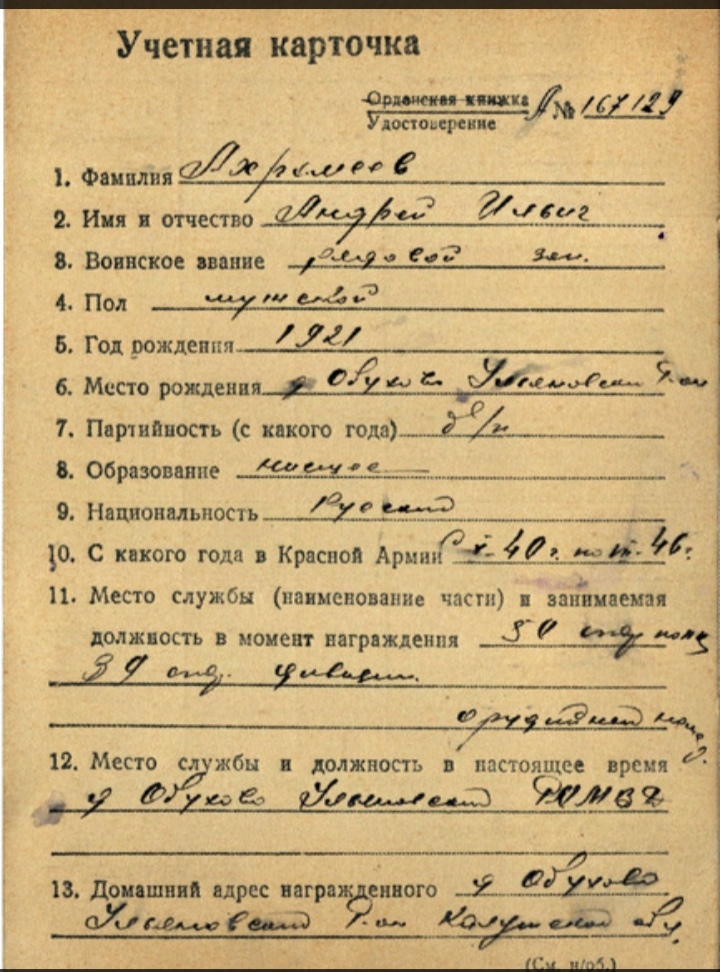 Учетная карточка
Орденская книжка
Удостоверение А № 167129
1. Фамилия Ахромеев
2. Имя и отчество Андрей Ильич
3. Воинское звание рядовой зап.
4. Пол мужской
5. Год рождения 1921
6. Место рождения д Обухово Ульяновский Р-он
7. Партийность (с какого года) б/п
8. Образование низшее
9. Национальность Русский
10. С какого года в Красной Армии С X-40 г. по VI-46 г.
11. Место службы (наименование части) и занимаемая
должность в момент награждения 50 стр полк
39 стр. дивизии.
орудийный номер
12. Место службы и должность в настоящее время
д Обухово Ульяновский РОМВД
13. Домашний адрес награжденного д Обухово
Ульяновский Р-он Калужской обл.
(См. н/об.)